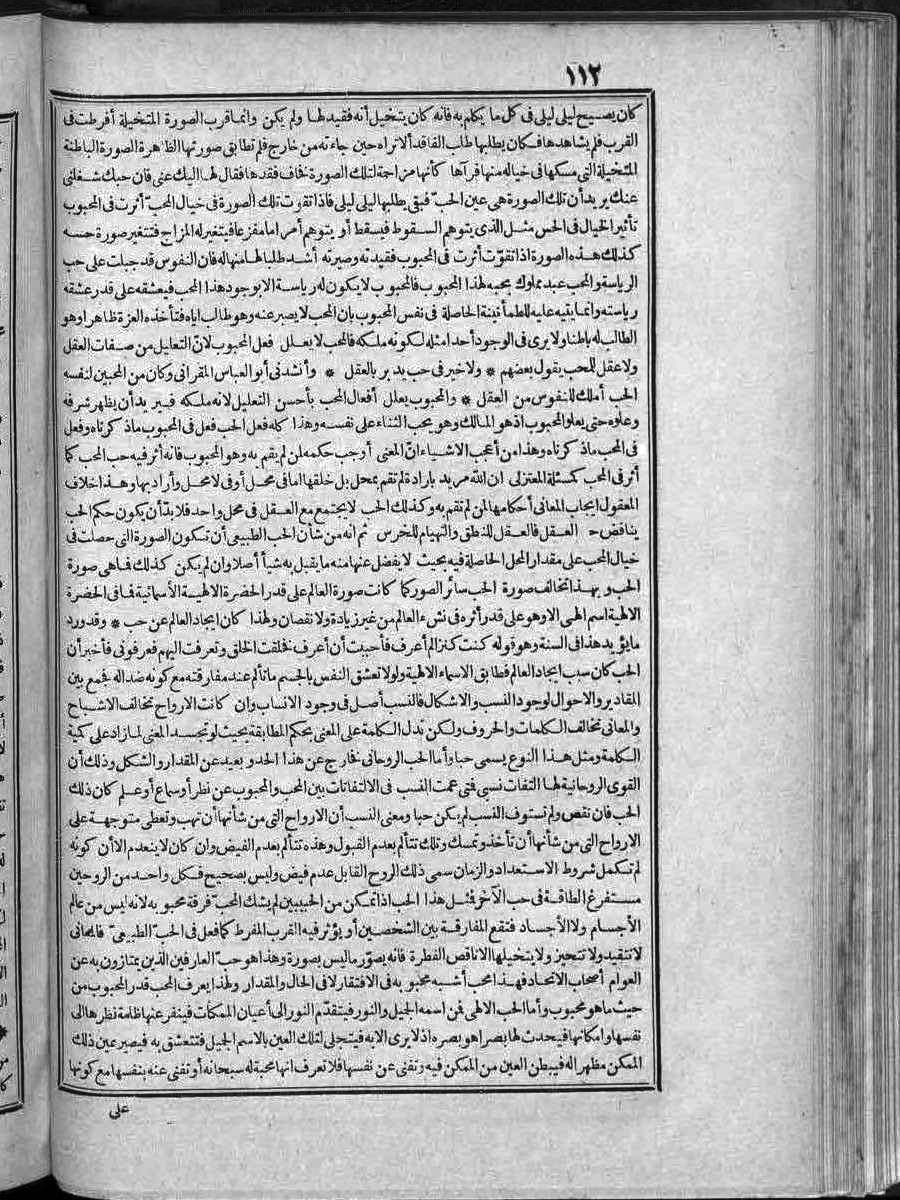 ١١٢
كان يصيح ليلى ليلى فى كل ما يكلم به فانه كان يتخيل أنه فقيد لها ولم يكن وانما قرب الصورة المتخيلة أفرطت فى
القرب فلم يشاهدها فكان يطلبها طلب الفاقد ألا تراه حين جاءته من خارج فلم تطابق صورتها الظاهرة الصورة الباطنة
المتخيلة التى مسكها فى خياله منها فرآها كأنها مزاحمة لتلك الصورة نخاف فقدها فقال لها اليك عنى فان حبك شغلنى
عنك يريد أن تلك الصورة هى عين الحب فبقى يطلبها ليلى ليلى فاذا تقوت تلك الصورة فى خيال المحب أثرت فى المحبوب
تأثير الخيال فى الحس مثل الذى يتوهم السقوط فيسقط أو يتوهم أمرا ما مفزعا فيتغير له المزاج فتتغير صورة حسه
كذلك هذه الصورة اذا تقوت أثرت فى المحبوب فقيدته وصيرته أشد طلبا لها منها له فان النفوس قد جبلت على حب
الرياسة والمحب عبد مملوك بحبه لهذا المحبوب فالمحبوب لا يكون له رياسة الا بوجود هذا المحب فيعشقه على قدر عشقه
رياسته وانما يتيه عليه للطمأنينة الحاصلة فى نفس المحبوب بان المحب لا يصبر عنه وهو طالب اياه فتأخذه العزة ظاهرا وهو
الطالب له باطنا ولا يرى فى الوجود أحدا مثله لكونه ملكه فالمحب لا يعلل فعل المحبوب لان التعليل من صفات العقل
ولا عقل للمحب يقول بعضهم * ولا خير فى حب يدبر بالعقل * وأنشدنى أبو العباس المقرانى وكان من المحبين لنفسه
الحب أملك للنفوس من العقل * والمحبوب يعلل أفعال المحب بأحسن التعليل لانه ملكه فيريد أن يظهر شرفه
وعلوه حتى يعلو المحبوب اذ هو المالك وهو يحب الثناء على نفسه وهذا كله فعل الحب فعل فى المحبوب ما ذكرناه وفعل
فى المحب ما ذكرناه وهذا من أعجب الاشياء ان المعنى أوجب حكمه لمن لم يقم به وهو المحبوب فانه أثر فيه حب المحب كما
أثر فى المحب كمسئلة المعتزلى ان الله مريد بارادة لم تقم بمحل بل خلقها اما فى محل أو فى لا محل وأراد بها وهذا خلاف
المعقول ايجاب المعانى أحكامها لمن لم تقم به وكذلك الحب لا يجتمع مع العقل فى محل واحد فلا بد أن يكون حكم الحب
يناقض حـ العقل فالعقل للنطق والتهيام للخرس ثم انه من شأن الحب الطبيعى أن تكون الصورة التى حصلت فى
خيال المحب على مقدار المحل الحاصلة فيه بحيث لا يفضل عنها منه ما يقبل به شيأ أصلا وان لم يكن كذلك فما هى صورة
الحب وبهذا تخالف صورة الحب سائر الصور كما كانت صورة العالم على قدر الحضرة الالهية الأسمائية فما فى الحضرة
الالهية اسم الهى الا وهو على قدر أثره فى نشء العالم من غير زيادة ولا نقصان ولهذا كان ايجاد العالم عن حب * وقد ورد
ما يؤيد هذا فى السنة وهو قوله كنت كنزا لم أعرف فأحببت أن أعرف نخلقت الخلق وتعرفت اليهم فعرفونى فأخبر أن
الحب كان سبب ايجاد العالم فطابق الاسماء الالهية ولولا تعشق النفس بالجسم ما تألم عند مفارقته مع كونه ضدا له فجمع بين
المقادير والاحوال لوجود النسب والاشكال فالنسب أصل فى وجود الانساب وان كانت الارواح تخالف الاشباح
والمعانى تخالف الكلمات والحروف ولكن تدل الكلمة على المعنى بحكم المطابقة بحيث لو تجسد المعنى لما زاد على كمية
الكلمة ومثل هذا النوع يسمى حبا وأما الحب الروحانى نخارج عن هذا الحد وبعيد عن المقدار والشكل وذلك أن
القوى الروحانية لها التفات نسبى فمتى عمت النسب فى الالتفاتات بين المحب والمحبوب عن نظر أو سماع أو علم كان ذلك
الحب فان نقص ولم تستوف النسب لم يكن حبا ومعنى النسب أن الارواح التى من شأنها أن تهب وتعطى متوجهة على
الارواح التى من شأنها أن تأخذ وتمسك وتلك تتألم بعدم القبول وهذه تتألم بعدم الفيض وان كان لا ينعدم الا أن كونه
لم تكمل شروط الاستعداد والزمان سمى ذلك الروح القابل عدم فيض وليس بصحيح فكل واحد من الروحين
مستفرغ الطاقة فى حب الآخر فمثل هذا الحب اذا تمكن من الحبيبين لم يشك المحب فرقة محبوبه لانه ليس من عالم
الأجسام ولا الأجساد فتقع المفارقة بين الشخصين أو يؤثر فيه القرب المفرط كما فعل فى الحب الطبيعى فالمعانى
لا تتقيد ولا تتحيز ولا يتخيلها الا ناقص الفطرة فانه يصور ما ليس بصورة وهذا هو حب العارفين الذين يمتازون به عن
العوام أصحاب الاتحاد فهذا محب أشبه محبوبه فى الافتقار لا فى الحال والمقدار ولهذا يعرف المحب قدر المحبوب من
حيث ما هو محبوب وأما الحب الالهى فمن اسمه الجميل والنور فيتقدم النور الى أعيان الممكنات فينفر عنها ظلمة نظرها الى
نفسها وامكانها فيحدث لها بصرا هو بصره اذ لا يرى الا به فيتجلى لتلك العين بالاسم الجميل فتتعشق به فيصير عين ذلك
الممكن مظهرا له فيبطن العين من الممكن فيه وتفنى عن نفسها فلا تعرف انها محبة له سبحانه أو تفنى عنه بنفسها مع كونها
على